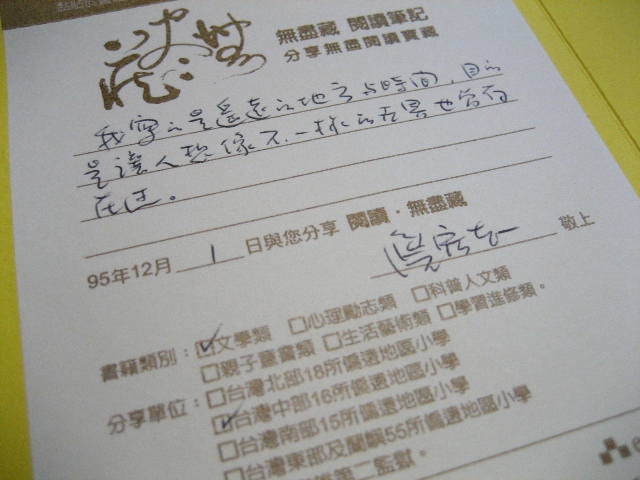 無盡藏 閱讀筆記
分享無盡閱讀寶藏
我寫的是遙遠的地方與時間，目的
是讓人想像不一樣的世界也曾存
在过。
95年12月 1 日與您分享 閱讀・無盡藏
敬上
書籍類別：☑文學類 □心理勵志類 □科普人文類
□親子童書類 □生活藝術類 □學習進修類。
分享單位：□台灣北部18所偏遠地區小學
☑台灣中部16所偏遠地區小學
□台灣南部15所偏遠地區小學
□台灣東部及蘭嶼55所偏遠地區小學
第二監獄。